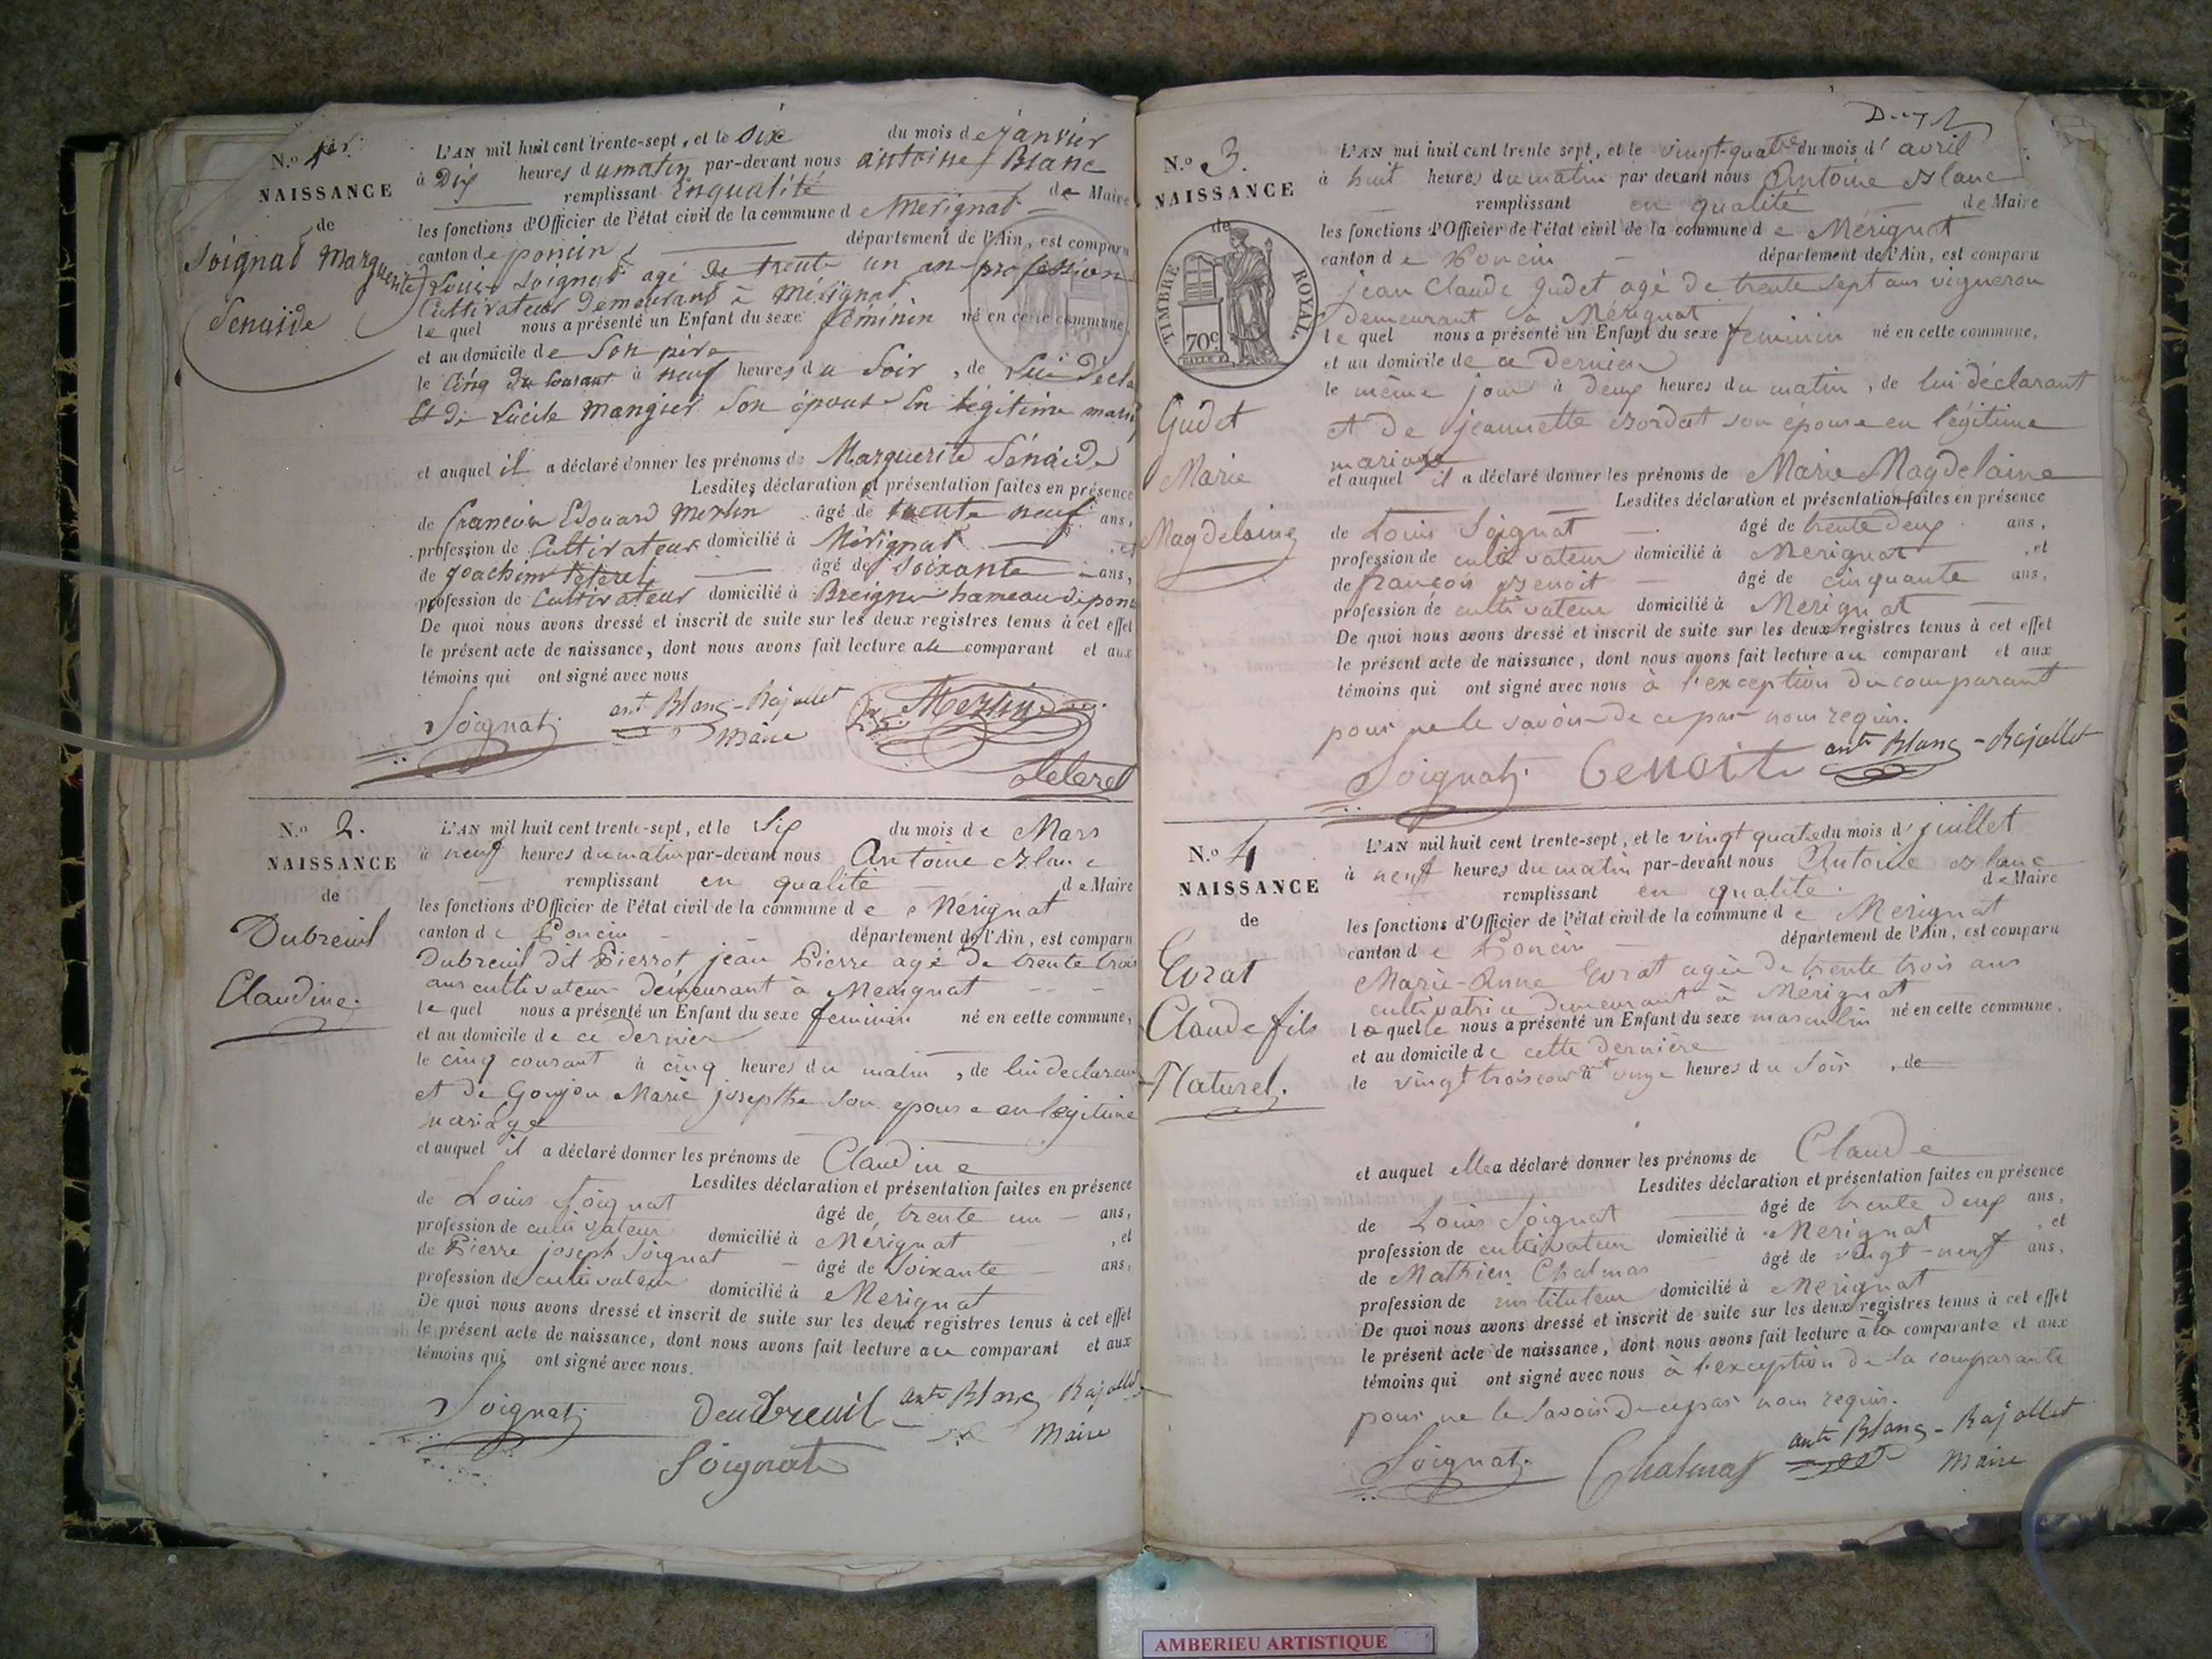 N.o 1er
NAISSANCE
de
Soignat Marguerite
Senaïde
L'AN mil huit cent trente-sept, et le Six du mois de janvier
à Dix heures du matin par-devant nous antoine Blanc
remplissant Enqualité de Maire
les fonctions d'Officier de l'état civil de la commune de Mérignat
canton de poncin département de l'Ain, est comparu
Louis Soignat agé de trente un an profession
Cultivateur Demeurant à Mérignat
le quel nous a présenté un Enfant du sexe féminin né en cette commune,
et au domicile de Son père
le Cinq du Courant à neuf heures du Soir, de Lui Décla
Et de Lucile Mangier Son épouse En légitime mari
et auquel il a déclaré donner les prénoms de Marguerite Sénaïde
Lesdites déclaration et présentation faites en présence
de françois Edouard Merlin âgé de trente neuf ans,
profession de Cultivateur domicilié à Mérignat, et
de Joachim âgé de Soixante ans,
profession de Cultivateur domicilié à Breignes hameau de ponc
De quoi nous avons dressé et inscrit de suite sur les deux registres tenus à cet effet
le présent acte de naissance, dont nous avons fait lecture au comparant et aux
témoins qui ont signé avec nous
Soignat ant Blanc-Rajollet Merlin
Maire
N.o 2.
NAISSANCE
de
Dubreuil
Claudine.
L'AN mil huit cent trente-sept, et le Six du mois de Mars
à neuf heures du matin par-devant nous Antoine Blanc
remplissant en qualité de Maire
les fonctions d'Officier de l'état civil de la commune de Mérignat
canton de Poncin département de l'Ain, est comparu
Dubreuil dit Pierrot jean Pierre agé de trente trois
ans cultivateur demeurant à Mérignat
le quel nous a présenté un Enfant du sexe feminin né en cette commune,
et au domicile de ce dernier
le cinq courant à cinq heures du matin, de lui declarant
et de Goujon Marie josepthe son epouse en légitime
mariage
et auquel il a déclaré donner les prénoms de Claudine
Lesdites déclaration et présentation faites en présence
de Louis Soignat âgé de trente un ans,
profession de cultivateur domicilié à Mérignat, et
de Pierre joseph Soignat âgé de Soixante ans,
profession de cultivateur domicilié à Merignat
De quoi nous avons dressé et inscrit de suite sur les deux registres tenus à cet effet
le présent acte de naissance, dont nous avons fait lecture au comparant et aux
témoins qui ont signé avec nous.
Soignat Deudbreuil ant Blanc Rajollet
Maire
Soignat
N.o 3.
NAISSANCE
de
TIMBRE ROYAL.
70c
Gudet
Marie
Magdelaine
L'AN mil huit cent trente sept, et le vingt-quatre du mois d'avril
à huit heures du matin par devant nous Antoine Blanc
remplissant en qualité de Maire
les fonctions d'Officier de l'état civil de la commune de Mérignat
canton de Poncin département de l'Ain, est comparu
jean Claude Gudet agé de trente sept ans vigneron
demeurant à Mérignat
le quel nous a présenté un Enfant du sexe feminin né en cette commune,
et au domicile de ce dernier
le même jour à deux heures du matin, de lui déclarant
et de jeannette Bordat son épouse en légitime
mariage
et auquel il a déclaré donner les prénoms de Marie Magdelaine
Lesdites déclaration et présentation faites en présence
de Louis Soignat âgé de trente deux ans,
profession de cultivateur domicilié à Merignat, et
de françois Benoit âgé de cinquante ans,
profession de cultivateur domicilié à Merignat
De quoi nous avons dressé et inscrit de suite sur les deux registres tenus à cet effet
le présent acte de naissance, dont nous avons fait lecture au comparant et aux
témoins qui ont signé avec nous à l'exception du comparant
pour ne le savoir de ce par nous requis.
Soignat Benoit ant Blanc-Rajollet
N.o 4
NAISSANCE
de
Evrat
Claude fils
Naturel.
L'AN mil huit cent trente-sept, et le vingt quatre du mois d'juillet
à neuf heures du matin par-devant nous Antoine Blanc
remplissant en qualité de Maire
les fonctions d'Officier de l'état civil de la commune de Merignat
canton de Poncin département de l'Ain, est comparu
Marie-Anne Evrat agée de trente trois ans
cultivatrice demeurant à Mérignat
laquelle nous a présenté un Enfant du sexe masculin né en cette commune,
et au domicile de cette dernière
le vingt trois courant à onze heures du Soir, de
et auquel elle a déclaré donner les prénoms de Claude
Lesdites déclaration et présentation faites en présence
de Louis Soignat âgé de trente deux ans,
profession de cultivateur domicilié à Merignat, et
de Mathieu Chalmas âgé de vingt-neuf ans,
profession de instituteur domicilié à Merignat
De quoi nous avons dressé et inscrit de suite sur les deux registres tenus à cet effet
le présent acte de naissance, dont nous avons fait lecture à la comparante et aux
témoins qui ont signé avec nous à l'exception de la comparante
pour ne le savoir de ce par nous requis.
Soignat Chalmas ant Blanc-Rajollet
Maire
AMBERIEU ARTISTIQUE